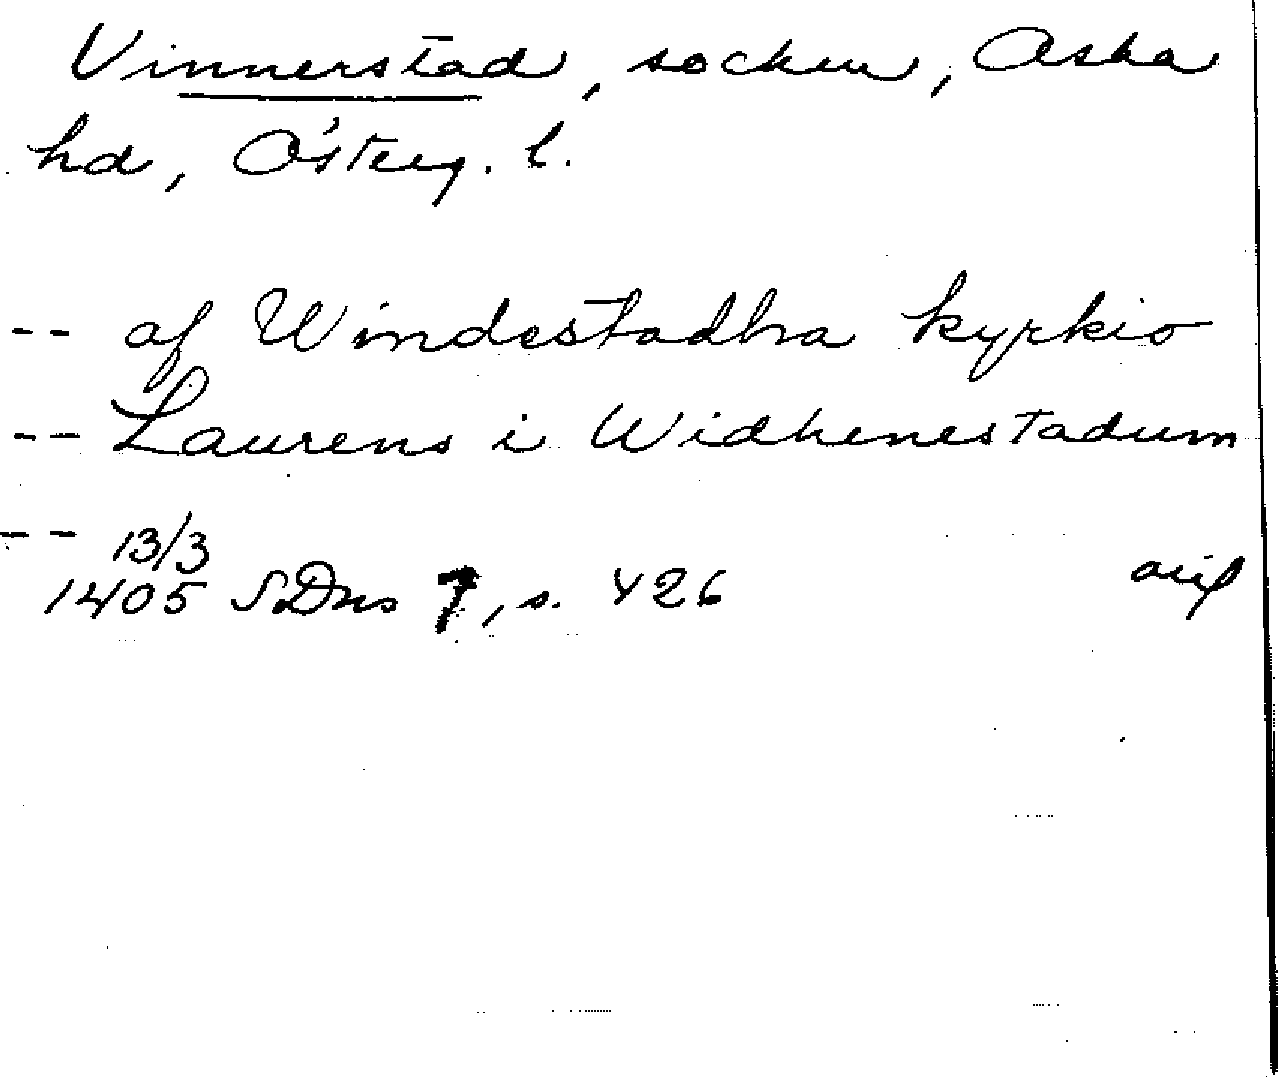 Vinnerstad, socken, Aska
hd, Österg. l.
-- af Windestadha kyrkio
-- Laurens i Widhenestadum
-- 13/3
1405 SDns 1, s. 426